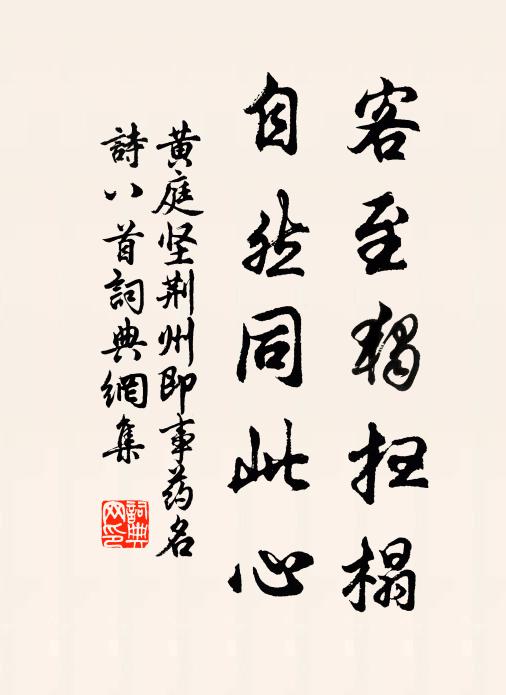 客至独扫榻
自然同此心
黄庭坚荆州即事药名
詩八首詞典網集
詞典网印